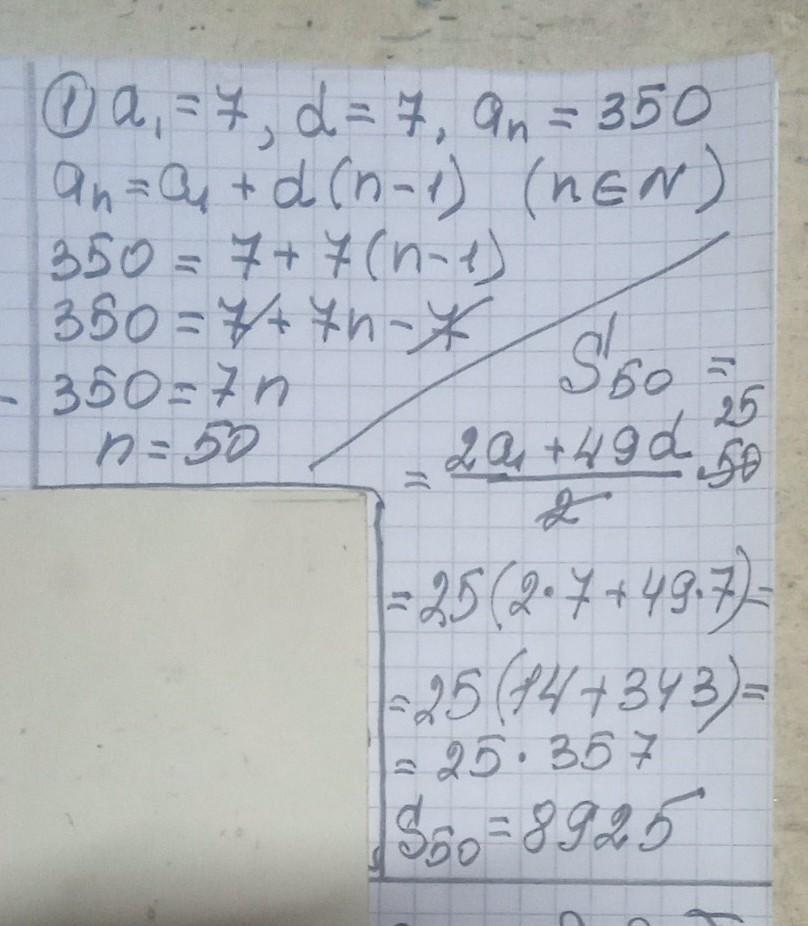 ① a₁ = 7, d = 7, aₙ = 350
aₙ = a₁ + d(n-1) (n∈N)
350 = 7 + 7(n-1)
350 = 7 + 7n - 7
350 = 7n
n = 50
S₅₀ =
25
= (2a₁ + 49d)/2 · 50
= 25(2·7 + 49·7) =
= 25(14 + 343) =
= 25 · 357
S₅₀ = 8925